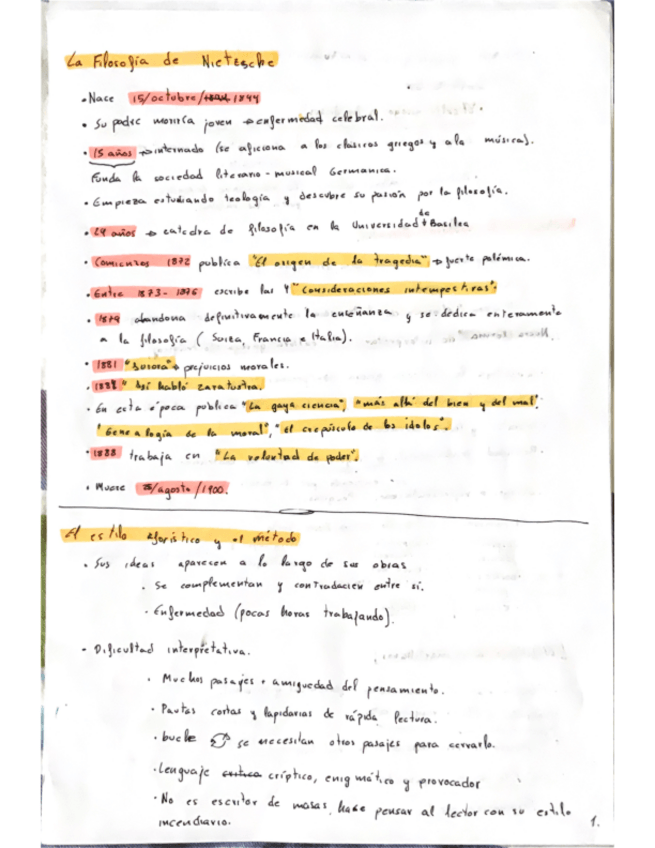 La Filosofía de Nietzsche
• Nace 15/octubre/1844
• Su padre moriría joven → enfermedad celebral.
• 15 años → internado (se aficiona a los clásicos griegos y a la música).
Funda la sociedad literario-musical Germanica.
• Empieza estudiando teología y descubre su pasión por la filosofía.
• 24 años → catedra de filosofía en la Universidad de Basilea
• Comienzos 1872 publica "El origen de la tragedia" → fuerte polémica.
• Entre 1873-1876 escribe las 4 "consideraciones intempestivas".
• 1879 abandona definitivamente la enseñanza y se dedica enteramente
a la filosofía (Suiza, Francia e Italia).
• 1881 "Aurora" → prejuicios morales.
• "Así habló Zaratustra.
• En esta época publica "La gaya ciencia", "más allá del bien y del mal",
"Genealogía de la moral", "el crepúsculo de los ídolos".
• 1888 trabaja en "La voluntad de poder".
• Muere /agosto/1900.
El estilo aforístico y el método
• Sus ideas aparecen a lo largo de sus obras
• Se complementan y contradacien entre sí.
• Enfermedad (pocas horas trabajando).
• Dificultad interpretativa.
• Muchos pasajes + amiguedad del pensamiento.
• Pautas cortas y lapidarias de rápida lectura.
• bucle se necesitan otros pasajes para cerrarlo.
• Lenguaje críptico, enigmático y provocador
• No es escritor de masas, hace pensar al lector con su estilo
incendiario.
1.